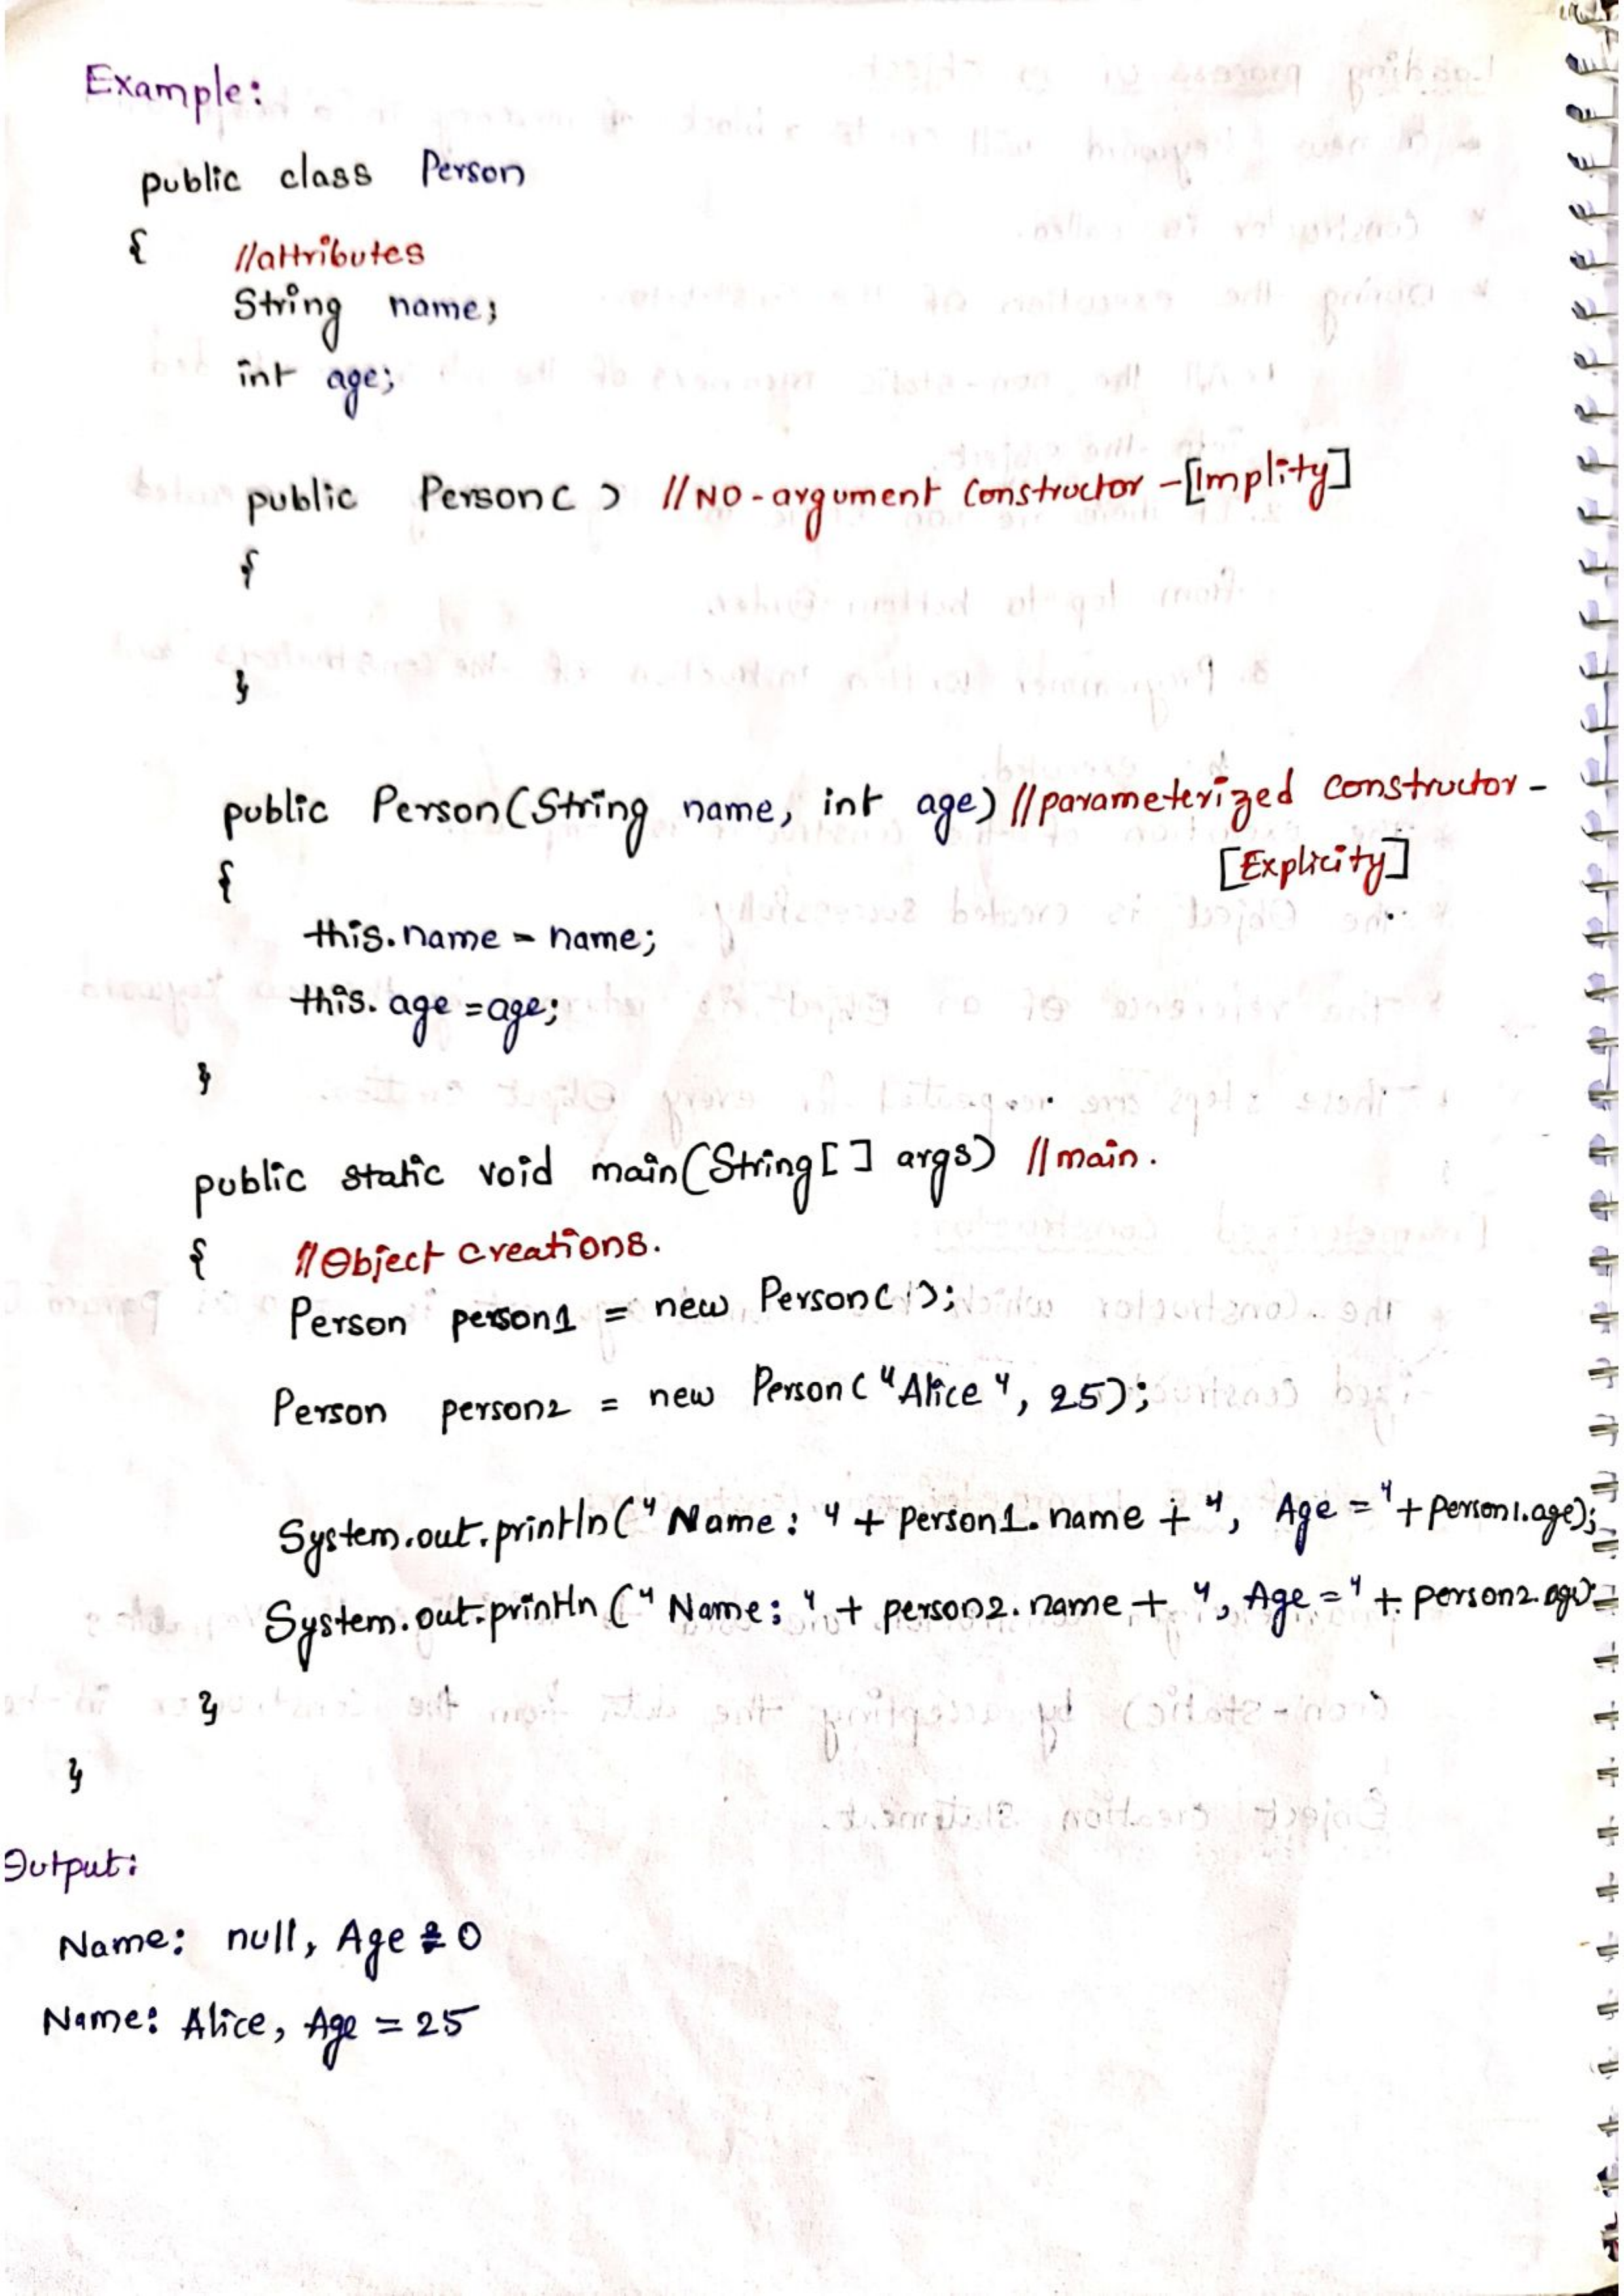 Example:
public class Person
{ //attributes
String name;
int age;
public Person( ) //NO-argument Constructor -[Implity]
{
}
public Person(String name, int age) //parameterized constructor -
[Explicity]
{
this.name = name;
this.age = age;
}
public static void main(String[ ] args) //main.
{ //Object creations.
Person person1 = new Person( );
Person person2 = new Person("Alice", 25);
System.out.println("Name: " + person1.name + ", Age = "+person1.age);
System.out.println("Name: " + person2.name + ", Age = " + person2.age);
}
}
Output:
Name: null, Age = 0
Name: Alice, Age = 25